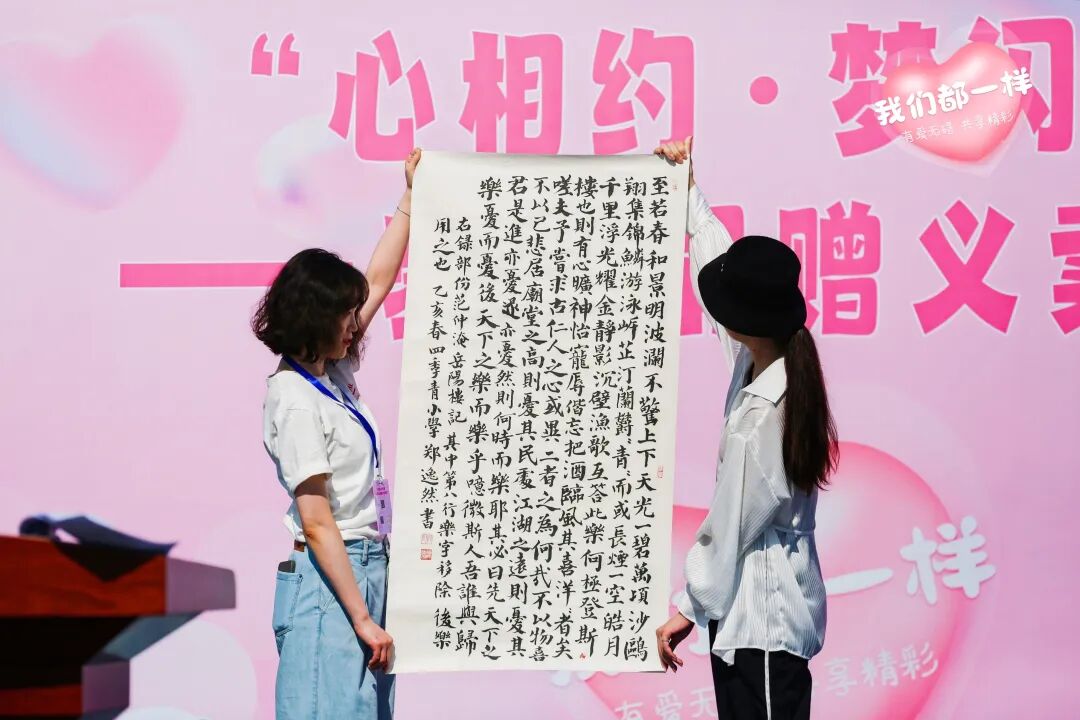 “心相约·梦
我们都一样
有爱无碍 共享精彩
赠义
至若春和景明波瀾不驚上下天光一碧萬頃沙鷗
翔集錦鱗游泳岸芷汀蘭欝〻青〻而或長煙一空皓月
千里浮光耀金靜影沉壁漁歌互答此樂何極登斯
樓也則有心曠神怡寵辱偕忘把酒臨風其喜洋〻者矣
嗟夫予嘗求古仁人之心或異二者之為何哉不以物喜
不以己悲居廟堂之高則憂其民處江湖之遠則憂其
君是進亦憂退亦憂然則何時而樂耶其必曰先天下之
樂憂而憂後天下之樂而樂乎噫微斯人吾誰與歸
右録部份范仲淹岳陽樓記 其中第八行樂字移除 後樂
用之也 乙亥春四季青小學鄭逸然書
一样
有爱无 共享精彩